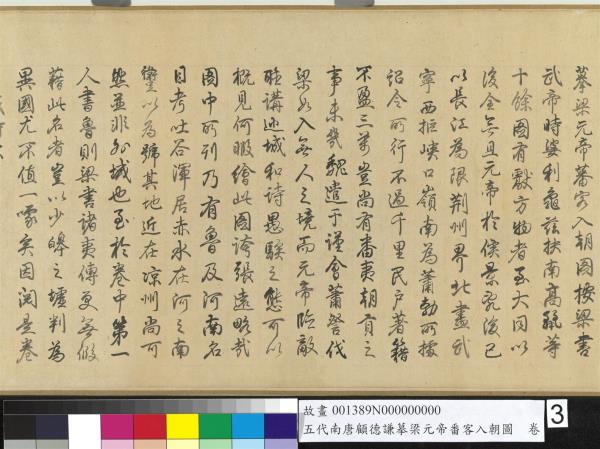 摹梁元帝蕃客入朝圖按梁書
武帝時婆利龜茲扶南高驪等
十餘國有獻方物者至大同以
後全無且元帝於侯景亂後已
以長江為限荊州界北盡武
寧西拒峽口嶺南為蕭勃所據
詔令所行不過千里民戶著籍
不盈三萬豈尚有番夷朝貢之
事未幾魏遣于謹會蕭詧伐
梁如入無人之境而元帝臨敵
猶講述城和詩愚騃之態可以
概見何暇繪此圖誇張遠略哉
圖中所列乃有魯及河南名
目考吐谷渾居赤水在河之南
鑾以為號其地近在涼州尚可
然並非外城也至於卷中第一
人書魯則梁書諸夷傳更無假
藉此名者豈以少皞之墟判為
異國尤不值一噱矣因閱是卷
故畫 001389N000000000
五代南唐顧德謙摹梁元帝番客入朝圖 卷
3